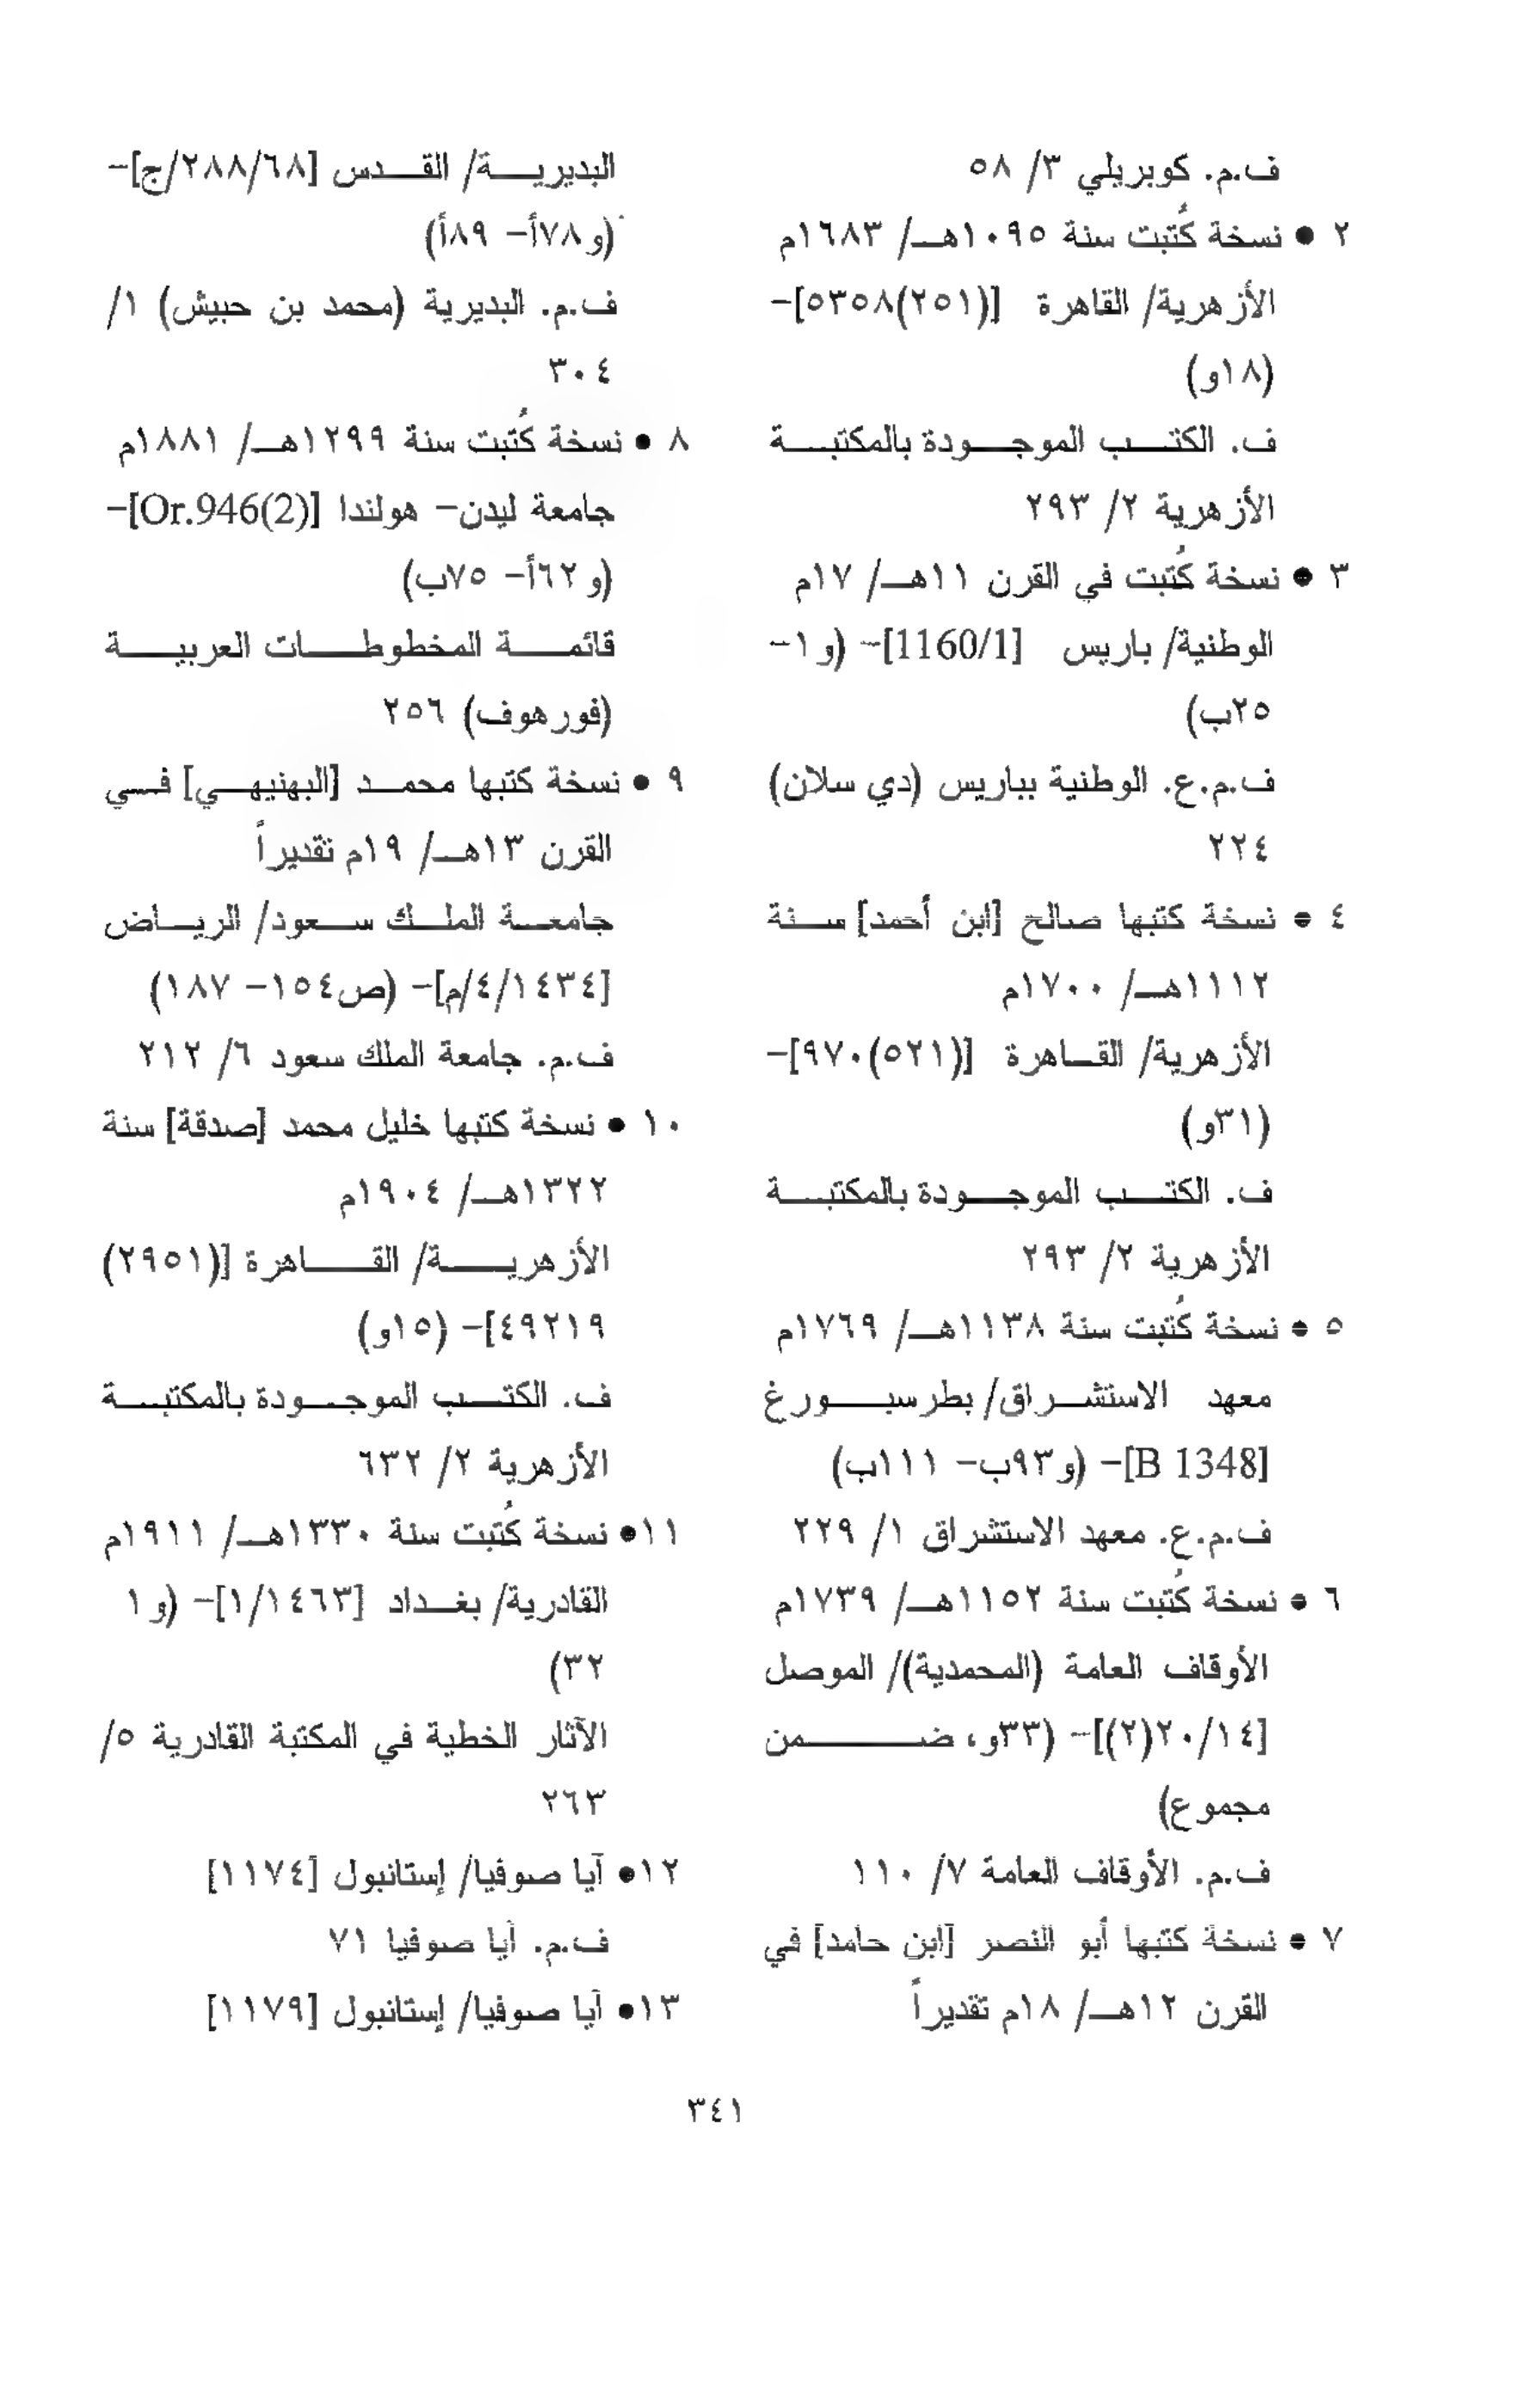 ف.م. كوبريلي ٣/ ٥٨
٢ • نسخة كُتبت سنة ١٠٩٥هـ/ ١٦٨٣م
الأزهرية/ القاهرة [(٢٥١)٥٣٥٨]-
(١٨و)
ف. الكتب الموجودة بالمكتبة
الأزهرية ٢/ ٢٩٣
٣ • نسخة كُتبت في القرن ١١هـ/ ١٧م
الوطنية/ باريس [1160/1]- (و١-
٢٥ب)
ف.م.ع. الوطنية بباريس (دي سلان)
٢٢٤
٤ • نسخة كتبها صالح [ابن أحمد] سنة
١١١٢هـ/ ١٧٠٠م
الأزهرية/ القاهرة [(٥٢١)٩٧٠]-
(٣١و)
ف. الكتب الموجودة بالمكتبة
الأزهرية ٢/ ٢٩٣
٥ • نسخة كُتبت سنة ١١٣٨هـ/ ١٧٦٩م
معهد الاستشراق/ بطرسبورغ
[B 1348]- (و٩٣ب- ١١١ب)
ف.م.ع. معهد الاستشراق ١/ ٢٢٩
٦ • نسخة كُتبت سنة ١١٥٢هـ/ ١٧٣٩م
الأوقاف العامة (المحمدية)/ الموصل
[٢٠/١٤(٢)]- (٣٣و، ضمن
مجموع)
ف.م. الأوقاف العامة ٧/ ١١٠
٧ • نسخة كتبها أبو النصر [ابن حامد] في
القرن ١٢هـ/ ١٨م تقديراً
البديرية/ القدس [٢٨٨/٦٨/ج]-
(و٧٨أ- ٨٩أ)
ف.م. البديرية (محمد بن حبيش) ١/
٣٠٤
٨ • نسخة كُتبت سنة ١٢٩٩هـ/ ١٨٨١م
جامعة ليدن- هولندا [Or.946(2)]-
(و٦٢أ- ٧٥ب)
قائمة المخطوطات العربية
(فورهوف) ٢٥٦
٩ • نسخة كتبها محمد [البهنيهي] في
القرن ١٣هـ/ ١٩م تقديراً
جامعة الملك سعود/ الرياض
[٤/١٤٣٤/م]- (ص١٥٤- ١٨٧)
ف.م. جامعة الملك سعود ٦/ ٢١٢
١٠ • نسخة كتبها خليل محمد [صدقة] سنة
١٣٢٢هـ/ ١٩٠٤م
الأزهرية/ القاهرة [(٢٩٥١)
٤٩٢١٩]- (١٥و)
ف. الكتب الموجودة بالمكتبة
الأزهرية ٢/ ٦٣٢
١١• نسخة كُتبت سنة ١٣٣٠هـ/ ١٩١١م
القادرية/ بغداد [١/١٤٦٣]- (و١
٣٢)
الآثار الخطية في المكتبة القادرية ٥/
٢٦٣
١٢• آيا صوفيا/ إستانبول [١١٧٤]
ف.م. آيا صوفيا ٧١
١٣• آيا صوفيا/ إستانبول [١١٧٩]
٣٤١